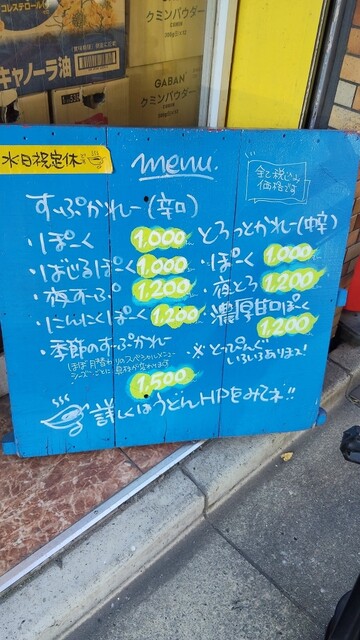 コレステロール0
キャノーラ油
GABAN
クミンパウダー
CUMIN
GABAN
クミンパウダー
CUMIN
水日祝定休
menu
全て税込み
価格です
すーぷかれー(辛口)
・ぽーく 1,000
・ばじるぽーく 1,000
・夜すーぷ 1,200
・にんにくぽーく 1,200
・季節のすーぷかれー
ほぼ月替わりのスペシャルメニュー
1,500
とろっとかれー(中辛)
・ぽーく 1,000
・夜とろ 1,200
・濃厚甘口ぽーく
1,200
※とっぴんぐ
いろいろあります!
詳しくはうどんHPをみてネ!!